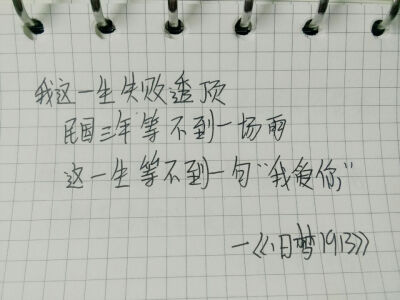 我这一生失败透顶
民国三年等不到一场雨
这一生等不到一句“我爱你”
—《旧梦1913》